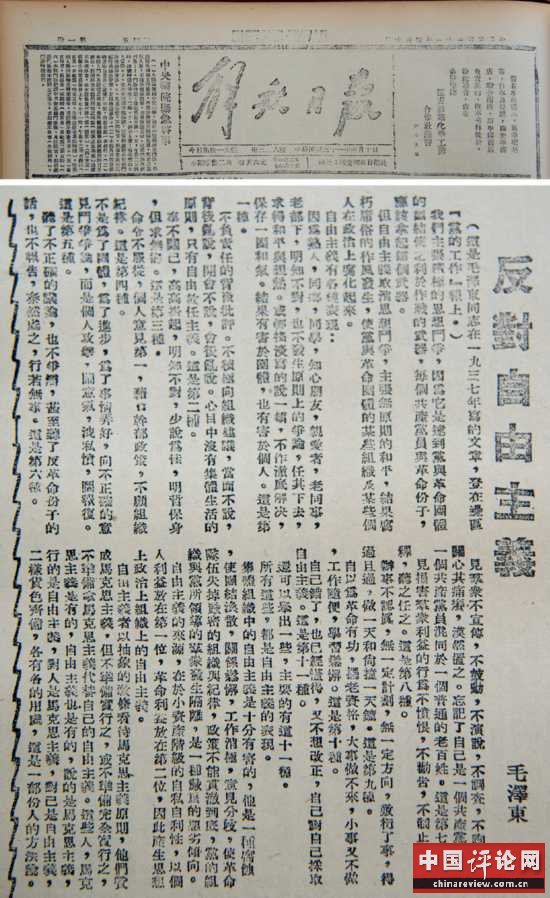 解放日報
反對自由主義
毛澤東
（這是毛澤東同志在一九三七年寫的文章，登在邊區
『黨的工作』報上。）
我們主張積極的思想鬥爭，因為它是達到黨與革命團體
的團結使之利於作戰的武器，每個共產黨員與革命份子，
應該拿起這個武器。
但自由主義取消思想鬥爭，主張無原則的和平，結果腐
朽庸俗的作風發生，使黨與革命團體的某些組織及某些個
人在政治上腐化起來。
自由主義有各種表現：
因為熟人，同鄉，同學，知心朋友，親愛者，老同事，
老部下，明知不對，也不發生原則上的爭論，任其下去，
求得和平與親熱。或輕描淡寫的說一頓，不作徹底解決，
保存一團和氣。結果有害於團體，也有害於個人。這是第
一種。
不負責任的背後批評。不積極向組織建議，當面不說，
背後亂說，開會不說，會後亂說。心目中沒有集體生活的
原則，只有自由放任主義。這是第二種。
事不關己，高高掛起，明知不對，少說為佳，明哲保身
，但求無過。這是第三種。
命令不服從，個人意見第一，藉口幹部政策，不顧組織
紀律。這是第四種。
不是為了團體，為了進步，為了事情弄好，向不正確的意
見鬥爭爭論，而是個人攻擊，鬧意氣，洩私憤，圖報復。
這是第五種。
聽了不正確的議論，也不爭辯，甚至聽了反革命份子的
話，也不報告，泰然處之，行若無事。這是第六種。
見群眾不宣傳，不鼓動，不演說，不調查，不詢
關心其痛癢，漠然置之。忘記了自己是一個共產黨
一個共產黨員混同於一個普通的老百姓。這是第七
見損害羣眾利益的行為不憤恨，不勸告，不制止
釋，聽之任之。這是第八種。
辦事不認真，無一定計劃，無一定方向，敷衍了事，得
過且過，做一天和尚撞一天鐘。這是第九種。
自以為革命有功，擺老資格，大事做不來，小事又不做
，工作隨便，學習鬆懈。這是第十種。
自己錯了，也已經懂得，又不想改正，自己對自己採取
自由主義。這是第十一種。
還可以舉出一些，主要的有這十一種。
所有這些，都是自由主義的表現。
集體組織中的自由主義是十分有害的，他是一種腐蝕
，使團結渙散，關係鬆懈，工作消極，意見分歧，使革命
隊伍失掉嚴密的組織與紀律，政策不能貫澈到底，黨的組
織與黨所領導的羣眾發生隔離，是一種嚴重的惡劣傾向。
自由主義的來源，在於小資產階級的自私自利性，以個
人利益放在第一位，革命利益放在第二位，因此產生思想
上政治上組織上的自由主義。
自由主義者以抽象的教條看待馬克思主義原則，他們贊
成馬克思主義，但不準備實行之，或不準備完全實行之，
不準備拿馬克思主義代替自己的自由主義。這些人，馬克
思主義是有的，自由主義也是有的，說的是馬克思主義，
行的是自由主義，對人是馬克思主義，對己是自由主義，
二樣貨色齊備，各有各的用處，這是一部份人的方法論。
中国评论网
chinareview.com.cn